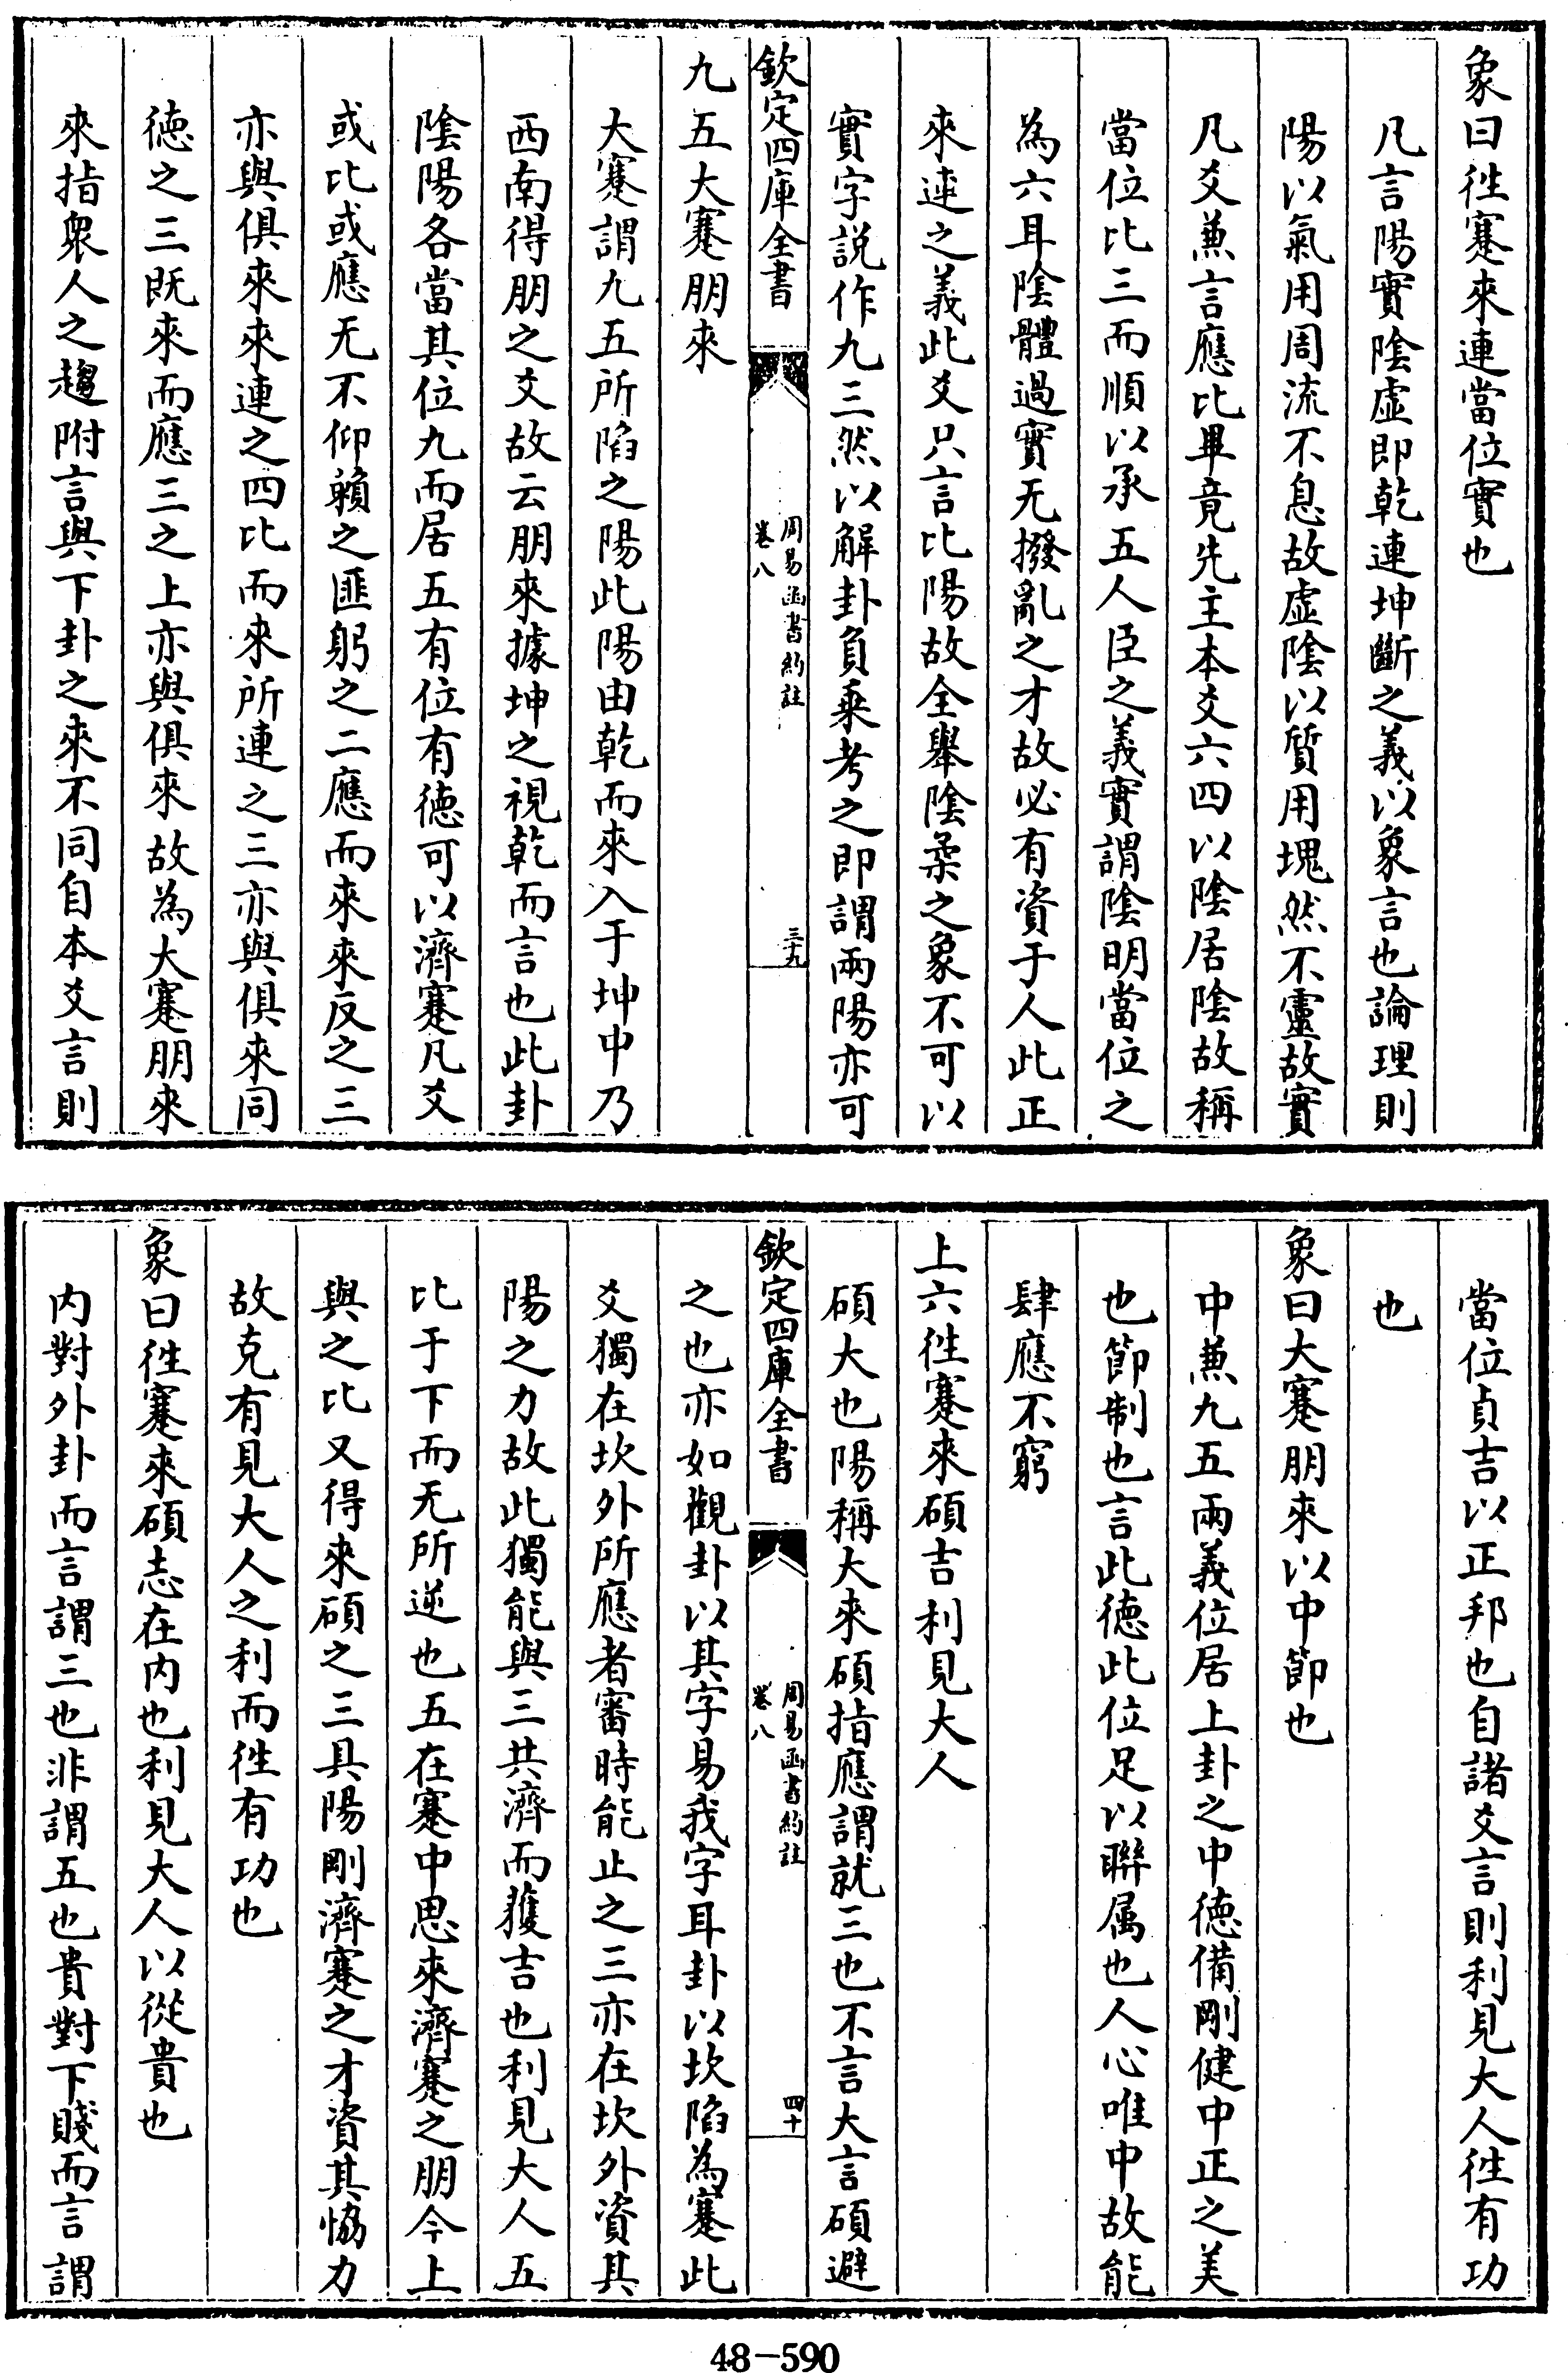 象曰徃蹇來連當位實也
凡言陽實陰虛即乾連坤斷之義以象言也論理則
陽以氣用周流不息故虛陰以質用塊然不靈故實
凡爻兼言應比畢竟先主本爻六四以陰居陰故稱
當位比三而順以承五人臣之義實謂陰明當位之
為六耳陰體過實无撥亂之才故必有資于人此正
來連之義此爻只言比陽故全舉陰柔之象不可以
實字説作九三然以解卦負乗考之即謂兩陽亦可
欽定四庫全書
周易函書約註
卷八
三十九
九五大蹇朋來
大蹇謂九五所陷之陽此陽由乾而來入于坤中乃
西南得朋之爻故云朋來據坤之視乾而言也此卦
陰陽各當其位九而居五有位有德可以濟蹇凡爻
或比或應无不仰賴之匪躬之二應而來來反之三
亦與俱來來連之四比而來所連之三亦與俱來同
德之三既來而應三之上亦與俱來故為大蹇朋來
來指衆人之趨附言與下卦之來不同自本爻言則
當位貞吉以正邦也自諸爻言則利見大人徃有功
也
象曰大蹇朋來以中節也
中兼九五兩義位居上卦之中德備剛健中正之美
也節制也言此德此位足以聯属也人心唯中故能
肆應不窮
上六徃蹇來碩吉利見大人
碩大也陽稱大來碩指應謂就三也不言大言碩避
欽定四庫全書
周易函書約註
卷八
四十
之也亦如觀卦以其字易我字耳卦以坎陷為蹇此
爻獨在坎外所應者審時能止之三亦在坎外資其
陽之力故此獨能與三共濟而獲吉也利見大人五
比于下而无所逆也五在蹇中思來濟蹇之朋今上
與之比又得來碩之三具陽剛濟蹇之才資其恊力
故克有見大人之利而徃有功也
象曰徃蹇來碩志在内也利見大人以從貴也
内對外卦而言謂三也非謂五也貴對下賤而言謂
48-590